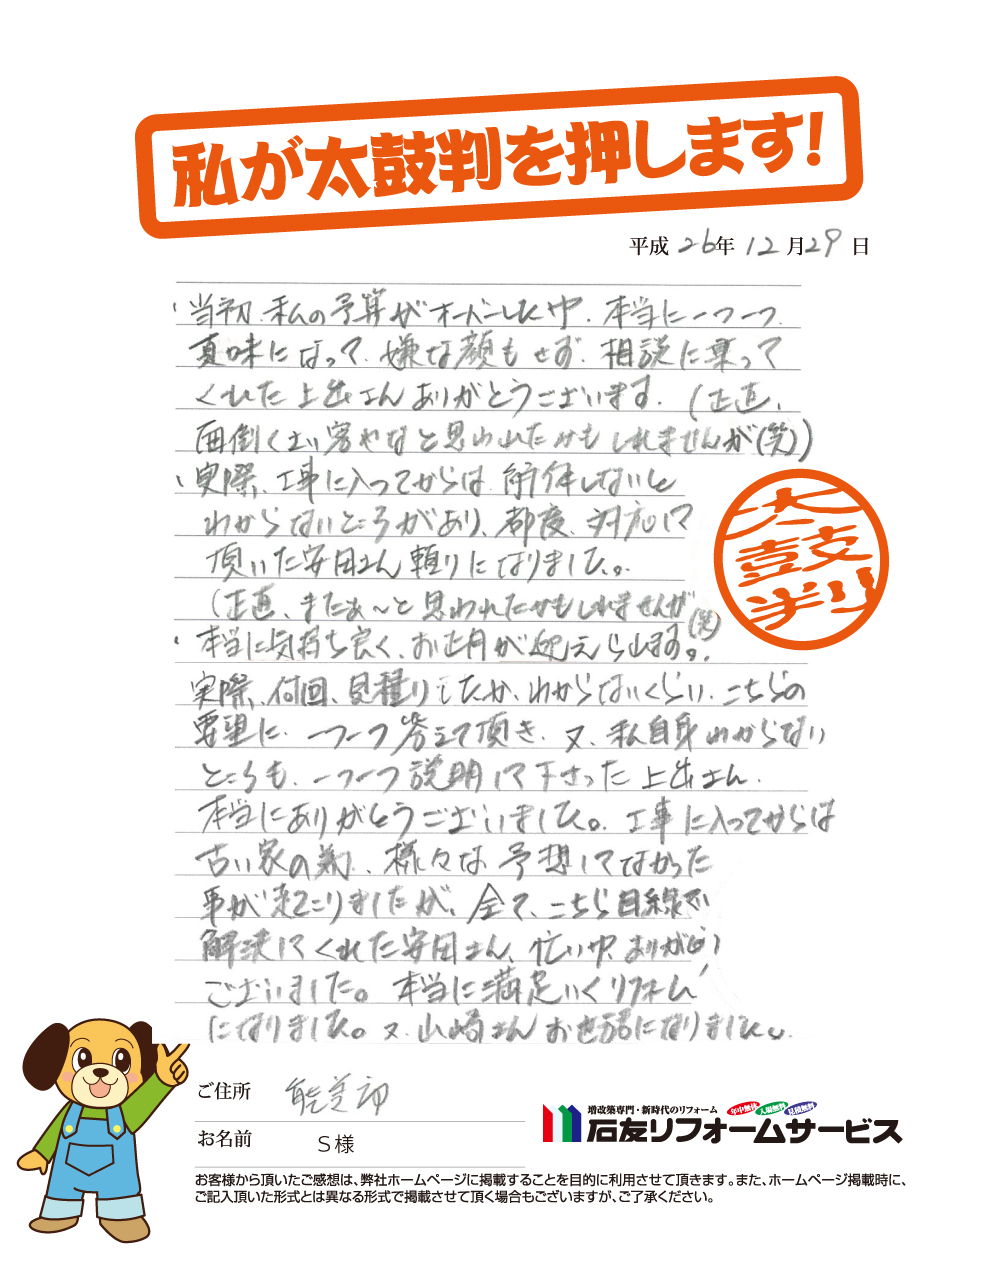 私が太鼓判を押します!
平成 26年 12月29日
・当初、私の予算がオーバーした中、本当に一つ一つ、
真味になって、嫌な顔もせず、相談に乗って
くれた上出さんありがとうございます。(正直、
面倒くさい客やなと思われたかもしれませんが(笑))
・実際、工事に入ってからは、解体しないと
わからないところがあり、都度、対応して
頂いた安田さん頼りになりました。
(正直、またぁ~と思われたかもしれませんが(笑)
・本当に気持ち良く、お正月が迎えられます。
実際、何回、見積りしたか、わからないくらい、こちらの
要望に、一つ一つ答えて頂き、又、私自身わからない
ところも、一つ一つ説明して下さった上出さん、
本当にありがとうございました。工事に入ってからは
古い家の為、様々な予想してなかった
事が起こりましたが、全て、こちら目線で
解決してくれた安田さん、忙しい中、ありがとう
ございました。本当に満足いくリフォーム
になりました。又、山崎さんお世話になりました。
太鼓判
ご住所 能美市
お名前 S様
増改築専門・新時代のリフォーム 年中無休 入場無料 見積無料
石友リフォームサービス
お客様から頂いたご感想は、弊社ホームページに掲載することを目的に利用させて頂きます。また、ホームページ掲載時に、
ご記入頂いた形式とは異なる形式で掲載させて頂く場合もございますが、ご了承ください。